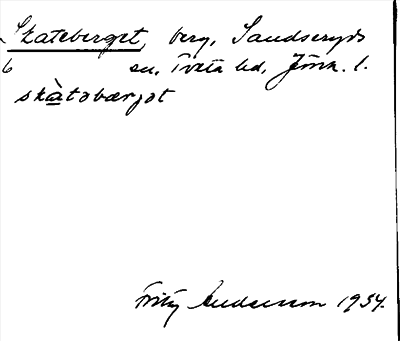 Skateberget, berg, Sandseryds
6 sn, Tveta hd, Jönk. l.
skàtəbærjət
Fritz Andersson 1934.